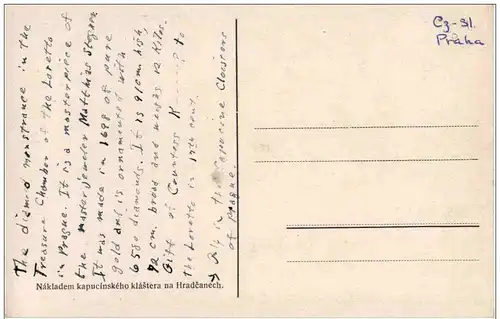 The diamond monstrance in the
Treasure Chamber of the Loretto
in Prague. It is a masterpiece of
the master jeweler Matthias Stegner
It was made in 1698 of pure
gold and is ornamented with
6580 diamonds. It is 91 cm high,
72 cm. broad and weighs 12 kilos.
Gift of Countess K to
the Loretto in 17th cent.
→ in the Capucine Cloisters
of Prague.
Nákladem kapucínského kláštera na Hradčanech.
Cz-31
Praha